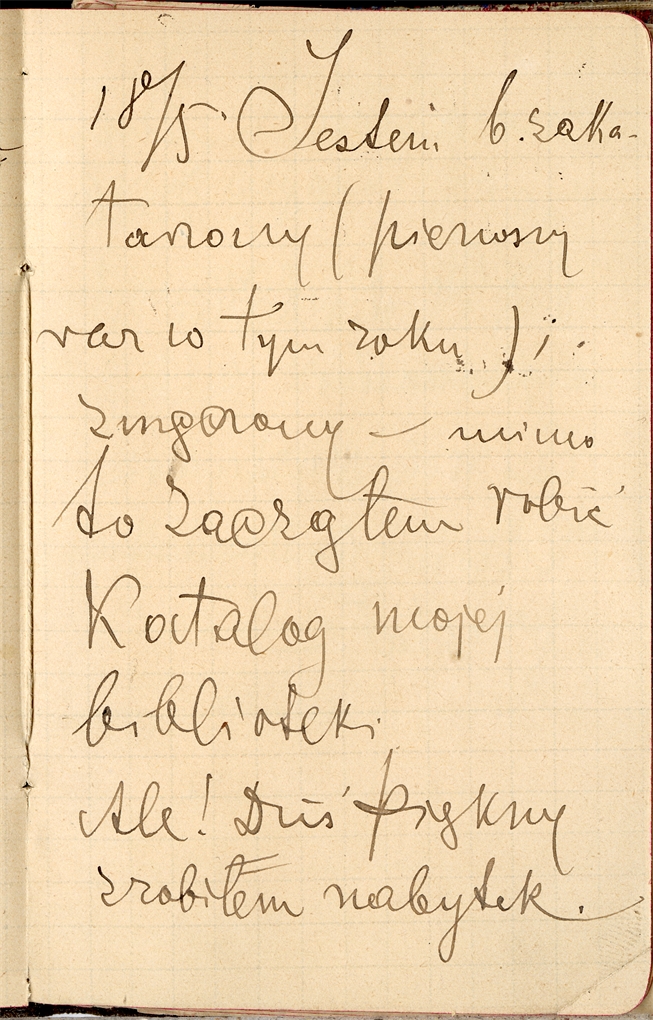 18/5. Jestem b. zaka-
tarzony (pierwszy
raz w tym roku) i
zmęczony – mimo
to zacząłem robić
Katalog mojej
biblioteki
Ale! Dziś piękny
zrobiłem nabytek.